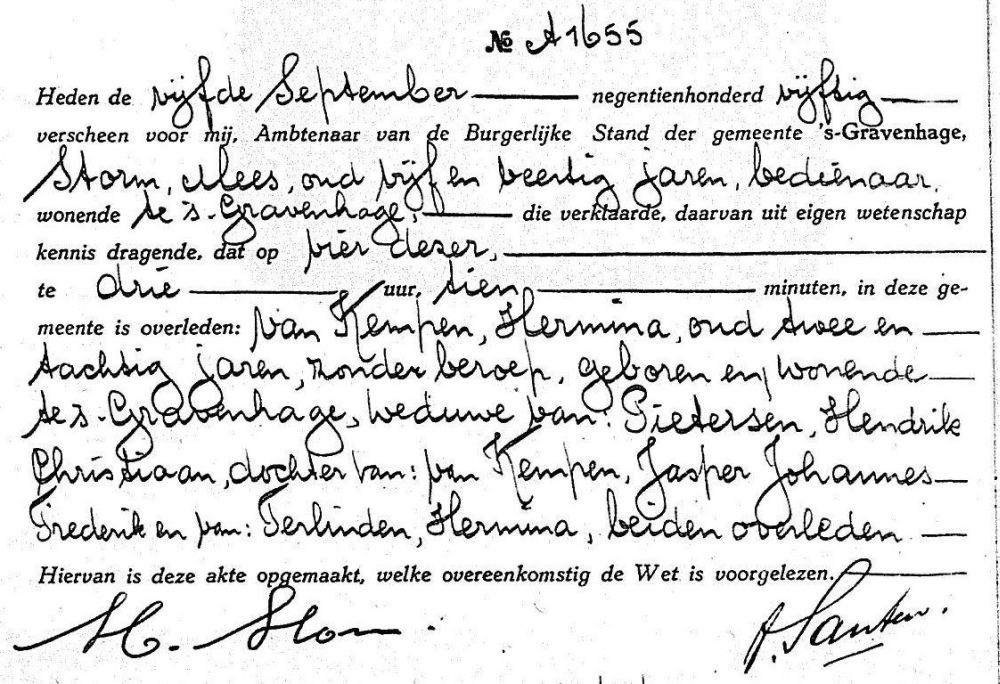 № A1655
Heden de vijfde September negentienhonderd vijftig
verscheen voor mij, Ambtenaar van de Burgerlijke Stand der gemeente 's-Gravenhage,
Storm, Mees, oud vijf en veertig jaren, bediènaar,
wonende te 's-Gravenhage, die verklaarde, daarvan uit eigen wetenschap
kennis dragende, dat op vier dezer,
te drie uur, tien minuten, in deze ge-
meente is overleden: van Kempen, Hermina, oud twee en
tachtig jaren, zonder beroep, geboren en wonende
te 's-Gravenhage, weduwe van: Pietersen, Hendrik
Christiaan, dochter van: van Kempen, Jasper Johannes
Frederik en van: Terlinden, Hermina, beiden overleden
Hiervan is deze akte opgemaakt, welke overeenkomstig de Wet is voorgelezen.
M. Storm.